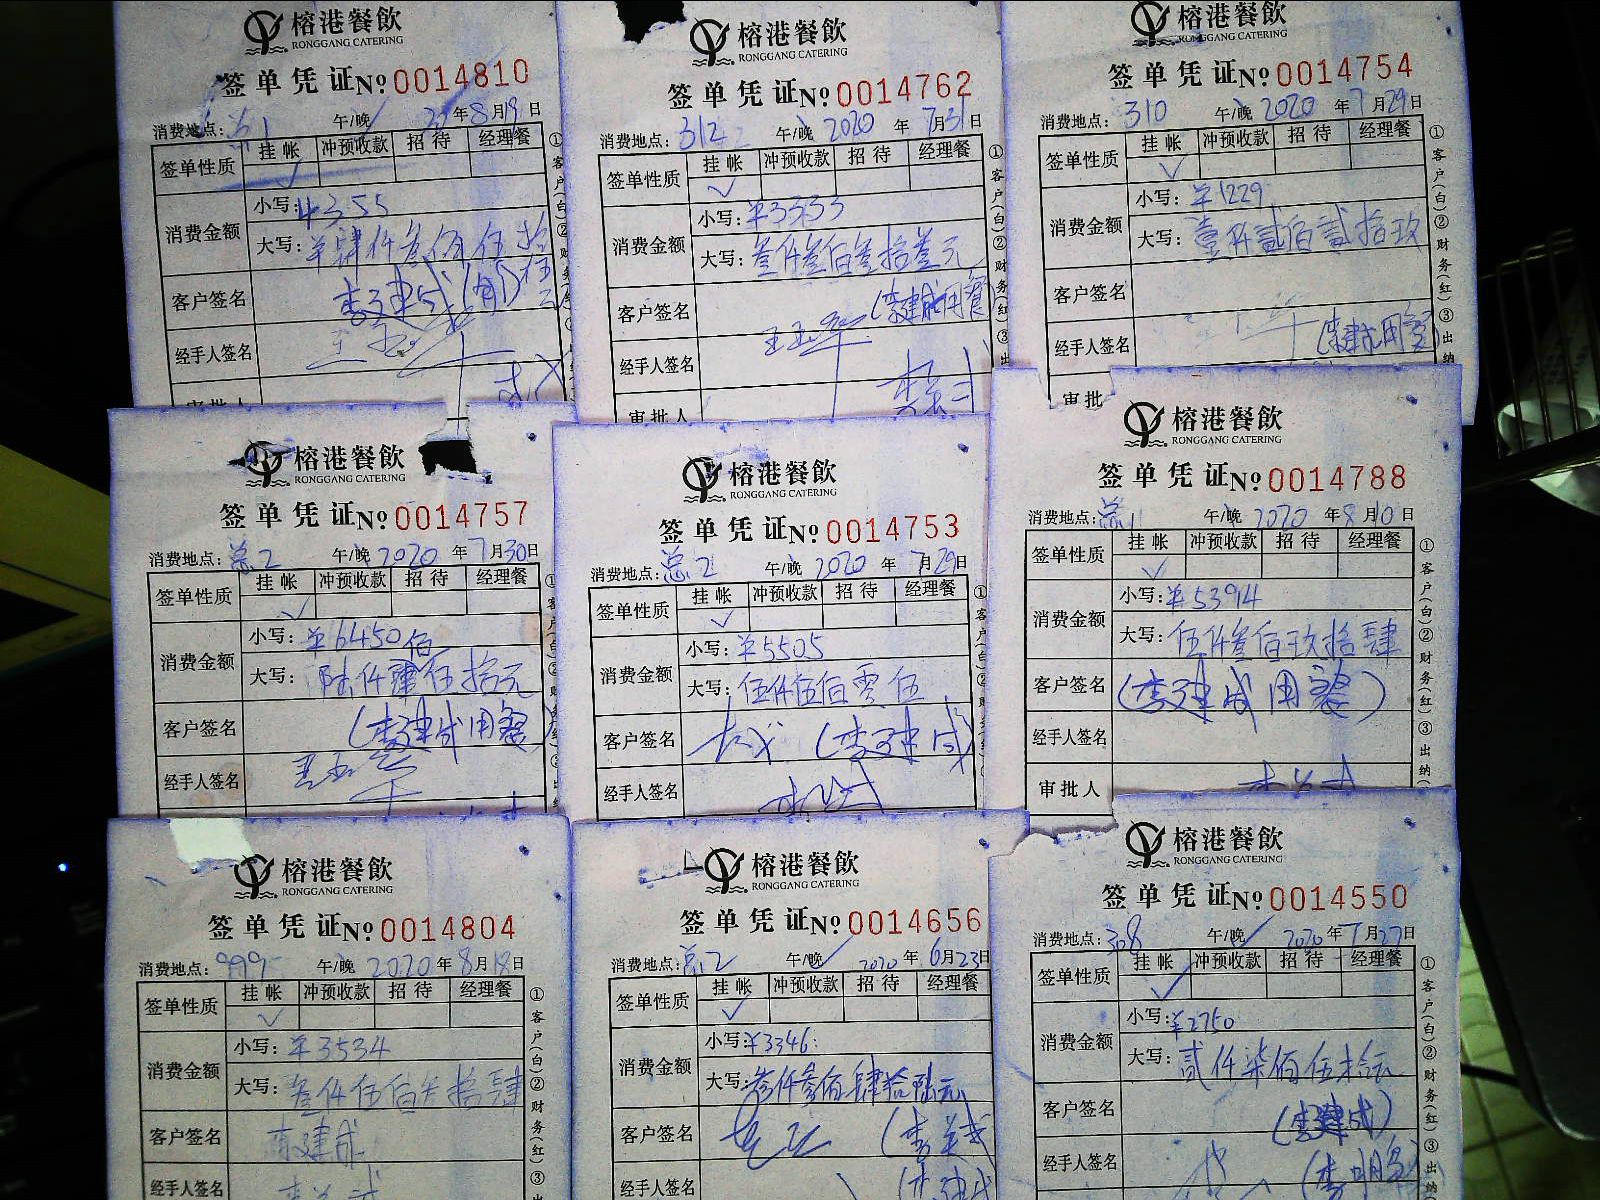 榕港餐飲
RONGGANG CATERING
签单凭证№0014810
消费地点: 总1 午/晚 年8月19日
签单性质 挂帐 冲预收款 招待 经理餐
消费金额 小写: 4355
大写: 肆仟叁佰伍拾伍
客户签名 李建成
经手人签名
审批人
①客户(白)②财务(红)
榕港餐飲
RONGGANG CATERING
签单凭证№0014762
消费地点: 312 午/晚 2020年7月31日
签单性质 挂帐 冲预收款 招待 经理餐
消费金额 小写: ¥3333
大写: 叁仟叁佰叁拾叁元
客户签名 (李建成用餐
经手人签名
审批人
①客户(白)②财务(红)③出
榕港餐飲
RONGGANG CATERING
签单凭证№0014754
消费地点: 310 午/晚 2020年7月29日
签单性质 挂帐 冲预收款 招待 经理餐
消费金额 小写: ¥1229
大写: 壹仟贰佰贰拾玖
客户签名
经手人签名 (李建成用餐
审批
①客户(白)②财务(红)③出纳
榕港餐飲
RONGGANG CATERING
签单凭证№0014757
消费地点: 总2 午/晚 2020年7月30日
签单性质 挂帐 冲预收款 招待 经理餐
消费金额 小写: ¥6450
大写: 陆仟肆佰伍拾元
客户签名 (李建成用餐
经手人签名
榕港餐飲
RONGGANG CATERING
签单凭证№0014753
消费地点: 总2 午/晚 2020年7月29日
签单性质 挂帐 冲预收款 招待 经理餐
消费金额 小写: ¥5505
大写: 伍仟伍佰零伍
客户签名 (李建成)
经手人签名
榕港餐飲
RONGGANG CATERING
签单凭证№0014788
消费地点: 总 午/晚 2020年8月10日
签单性质 挂帐 冲预收款 招待 经理餐
消费金额 小写: ¥5394
大写: 伍仟叁佰玖拾肆
客户签名 (李建成用餐)
经手人签名
审批人
①客户(白)②财务(红)③出纳
榕港餐飲
RONGGANG CATERING
签单凭证№0014804
消费地点: 999 午/晚 2020年8月18日
签单性质 挂帐 冲预收款 招待 经理餐
消费金额 小写: ¥3534
大写: 叁仟伍佰叁拾肆
客户签名 李建成
经手人签名
①客户(白)②财务(红)③
榕港餐飲
RONGGANG CATERING
签单凭证№0014656
消费地点: 总2 午/晚 2020年6月23日
签单性质 挂帐 冲预收款 招待 经理餐
消费金额 小写: ¥3346
大写: 叁仟叁佰肆拾陆元
客户签名
经手人签名
榕港餐飲
RONGGANG CATERING
签单凭证№0014550
消费地点: 308 午/晚 2020年7月27日
签单性质 挂帐 冲预收款 招待 经理餐
消费金额 小写: ¥2750
大写: 贰仟柒佰伍拾元
客户签名 (李建成)
经手人签名
①客户(白)②财务(红)③出纳